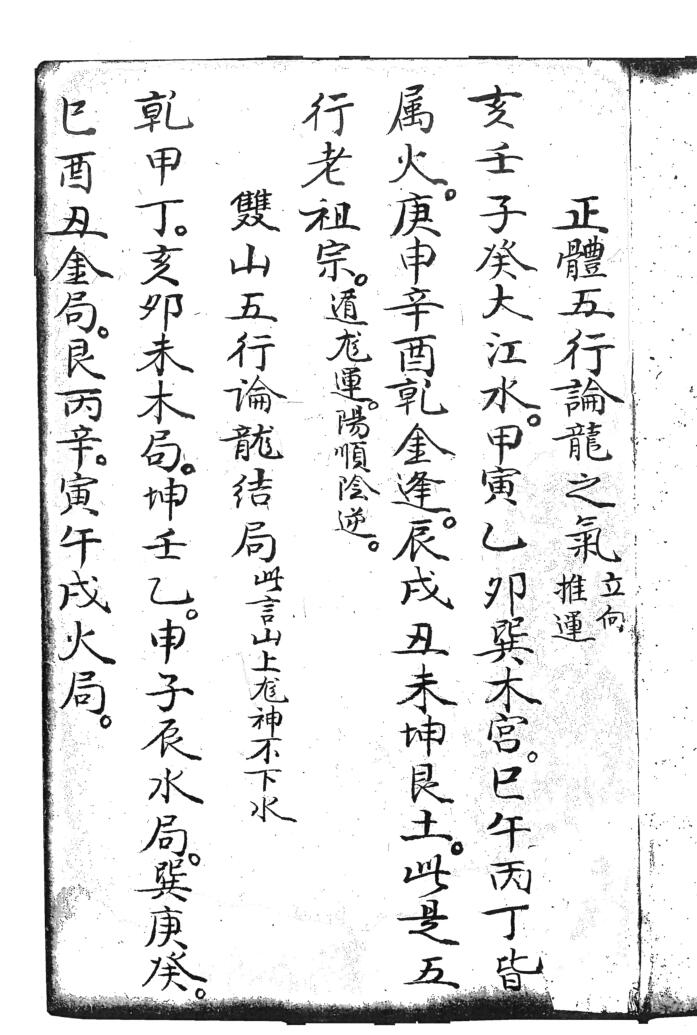 正體五行論龍之氣立向推運
亥壬子癸大江水。甲寅乙卯巽木宮。巳午丙丁皆
属火。庚申辛酉乾金逢。辰戌丑未坤艮土。此是五
行老祖宗。遁尨運。陽順陰逆。
雙山五行論龍结局此言山上尨神不下水
乾甲丁。亥卯未木局。坤壬乙。申子辰水局。巽庚癸。
巳酉丑金局。艮丙辛。寅午戌火局。